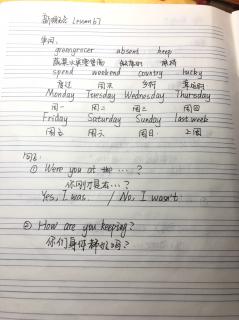 新概念 Lesson 67
单词:
greengrocer absent keep
蔬菜水果零售商 缺席的 保持
spend weekend country lucky
度过 周末 乡村 幸运的
Monday Tuesday Wednesday Thursday
周一 周二 周三 周四
Friday Saturday Sunday last week
周五 周六 周日 上周
① Were you at the … ?
你刚刚在…?
Yes, I was. / No, I wasn't.
② How are you keeping?
你们身体都好吗?